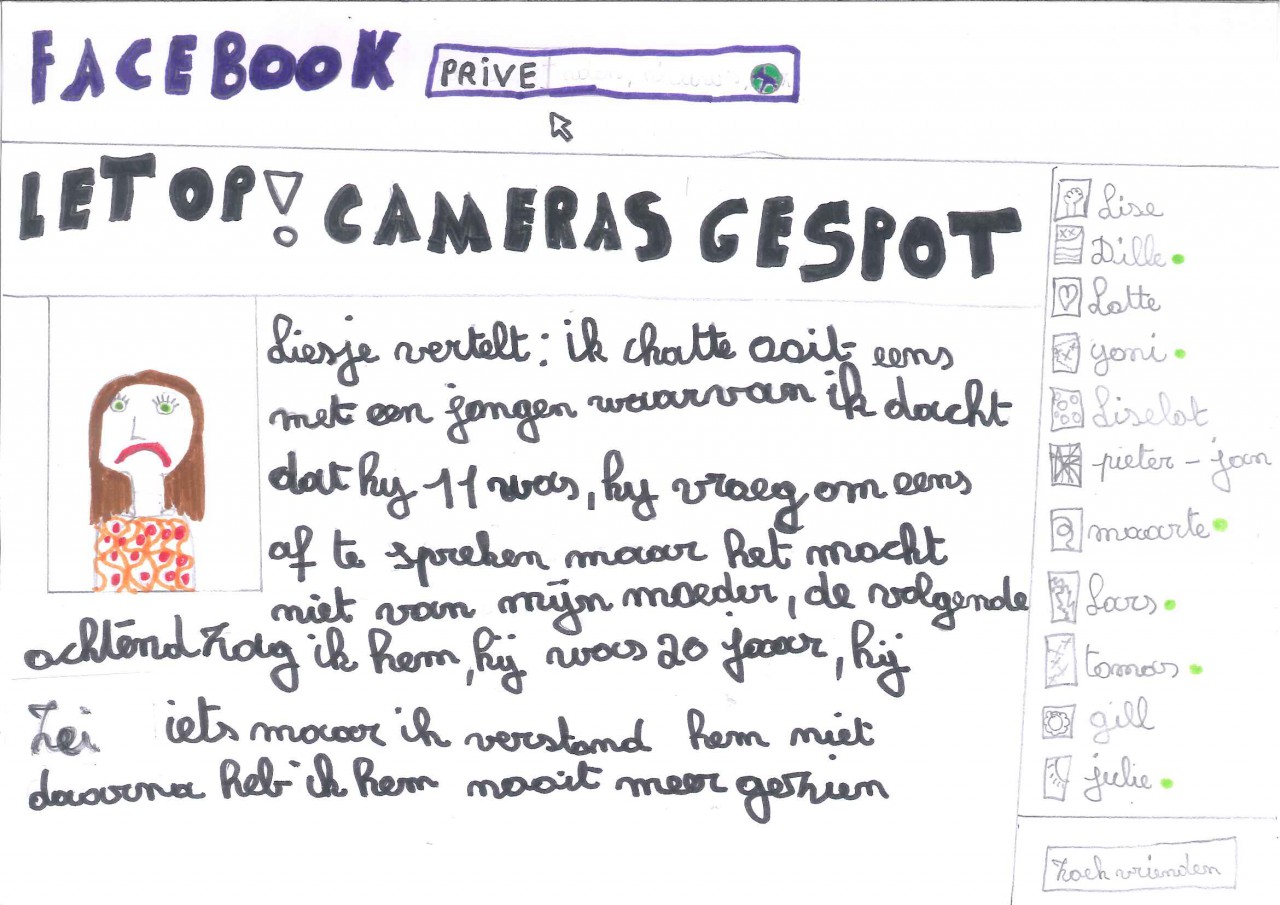 FACEBOOK
PRIVE
LET OP! CAMERAS GESPOT
Liesje vertelt: ik chatte ooit eens
met een jongen waarvan ik dacht
dat hy 11 was, hy vraeg om eens
af te spreken maar het mocht
niet van mijn moeder, de volgende
achtend zag ik hem, hij was 20 jaar, hij
Zei iets maar ik verstand hem niet
daarna heb ik hem nooit meer gezien
Lise
Dille
Lotte
yoni
Liselot
pieter - jan
maarte
Lars
tomas
gill
julie
Zoek vrienden